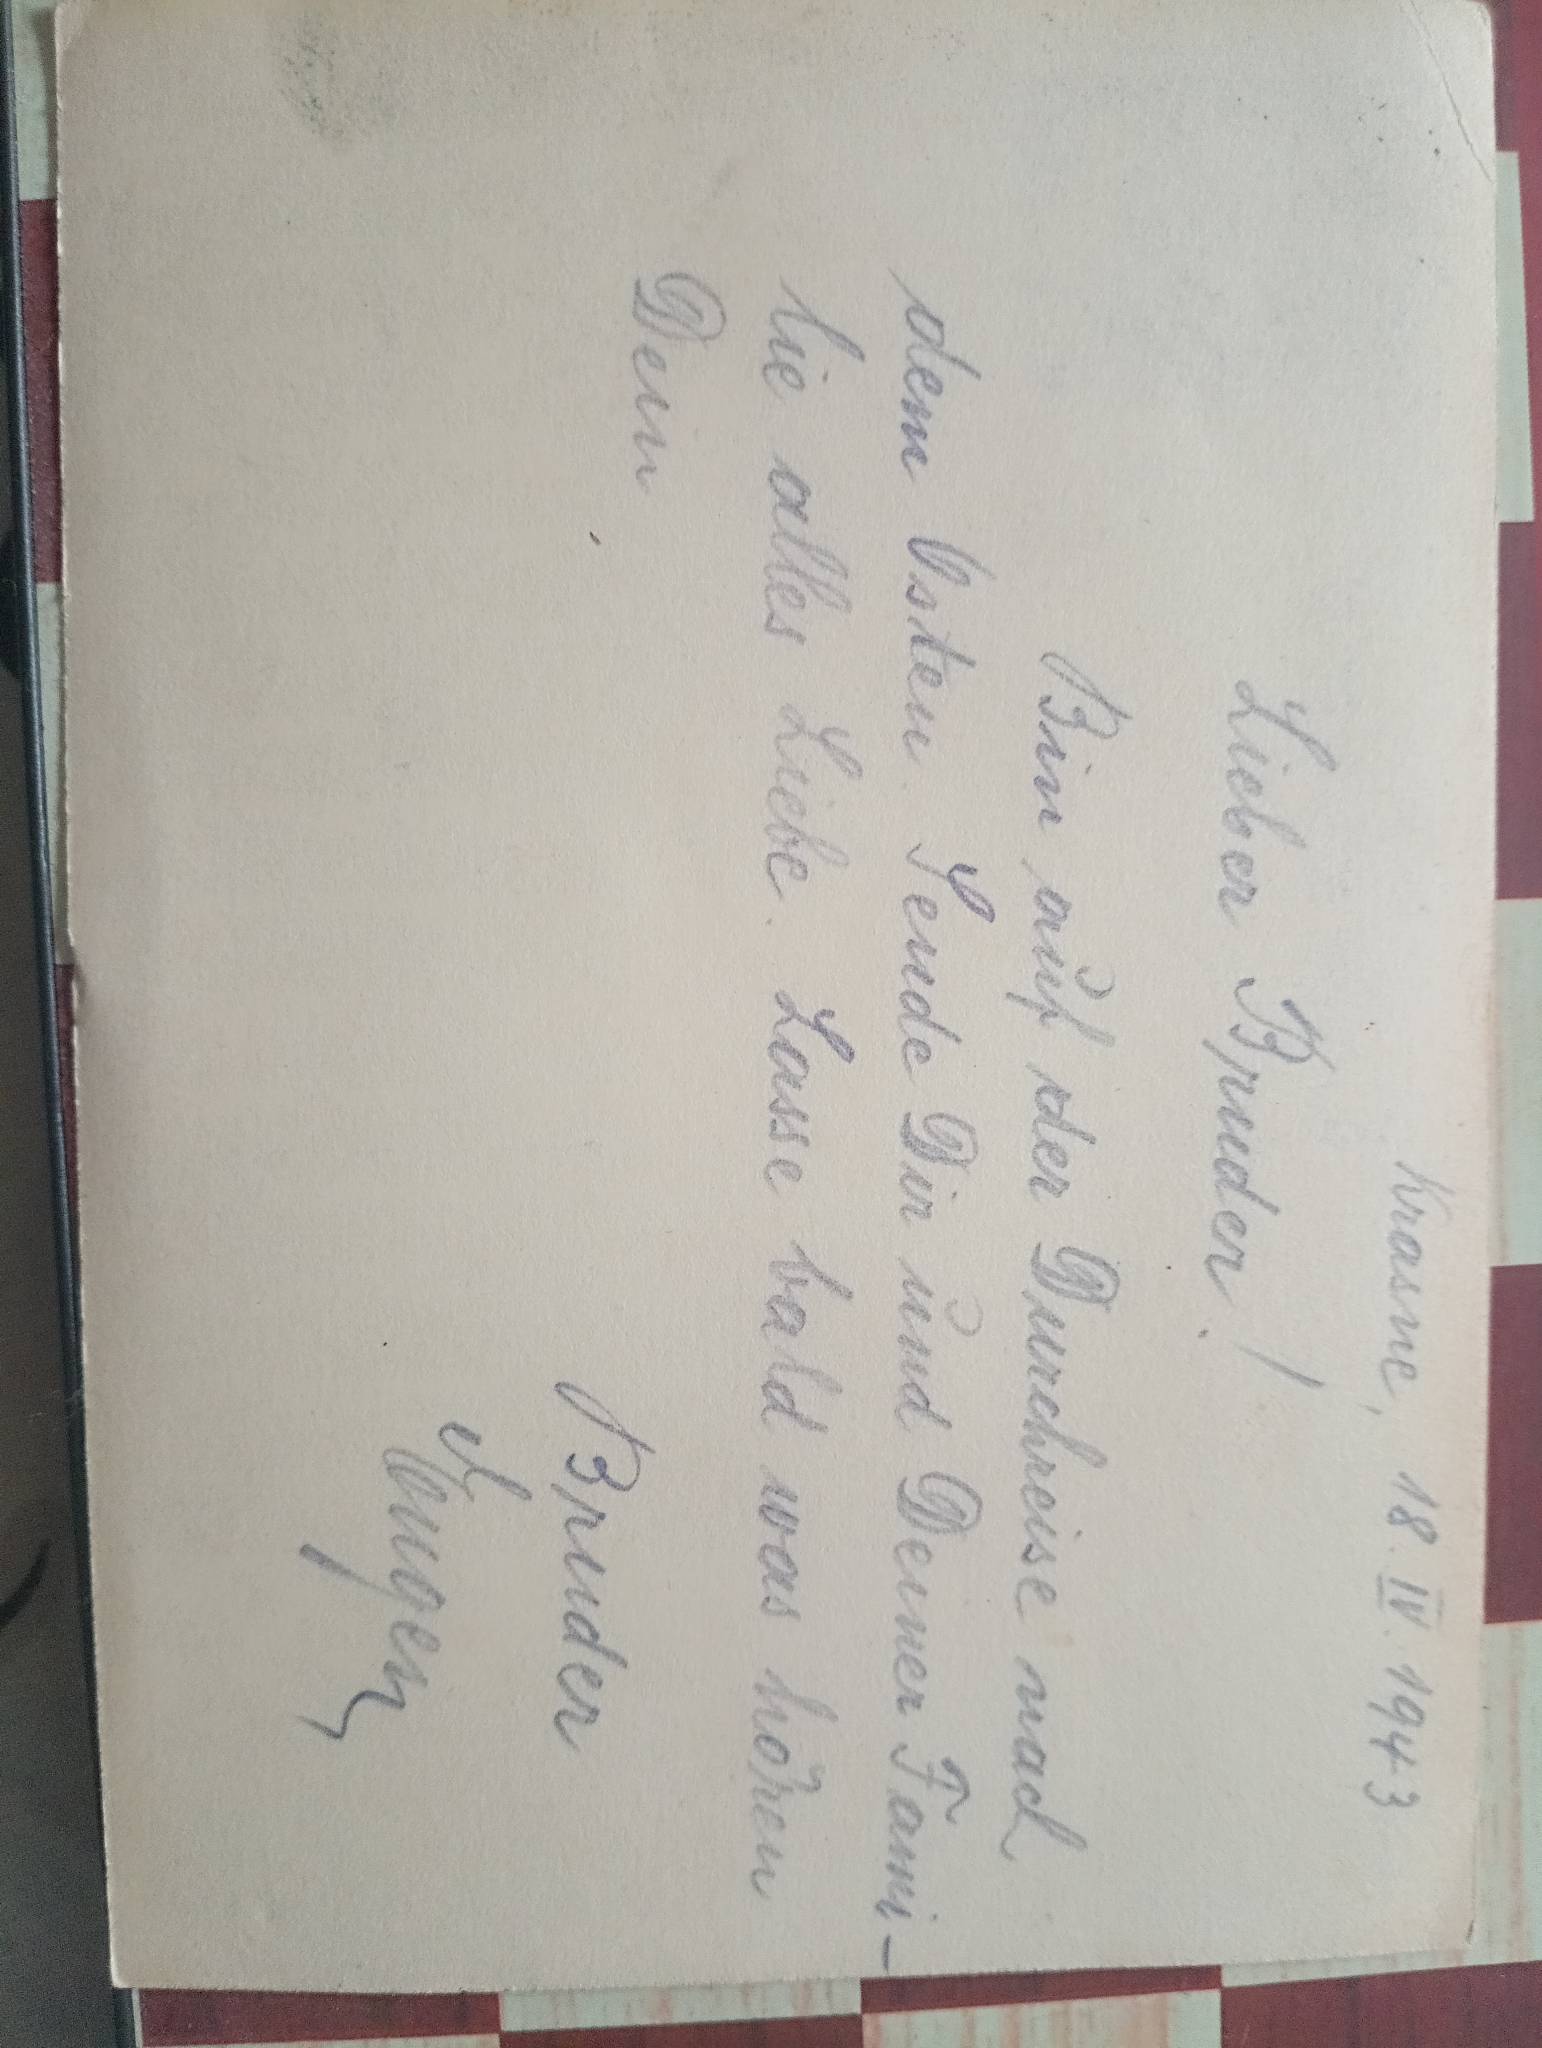 Krasne, 18. IV. 1943
Lieber Bruder!
Bin auf der Durchreise nach
dem Osten. Sende Dir und Deiner Fami-
lie alles Liebe. Lasse bald was hören
Dein
Bruder
Eugen